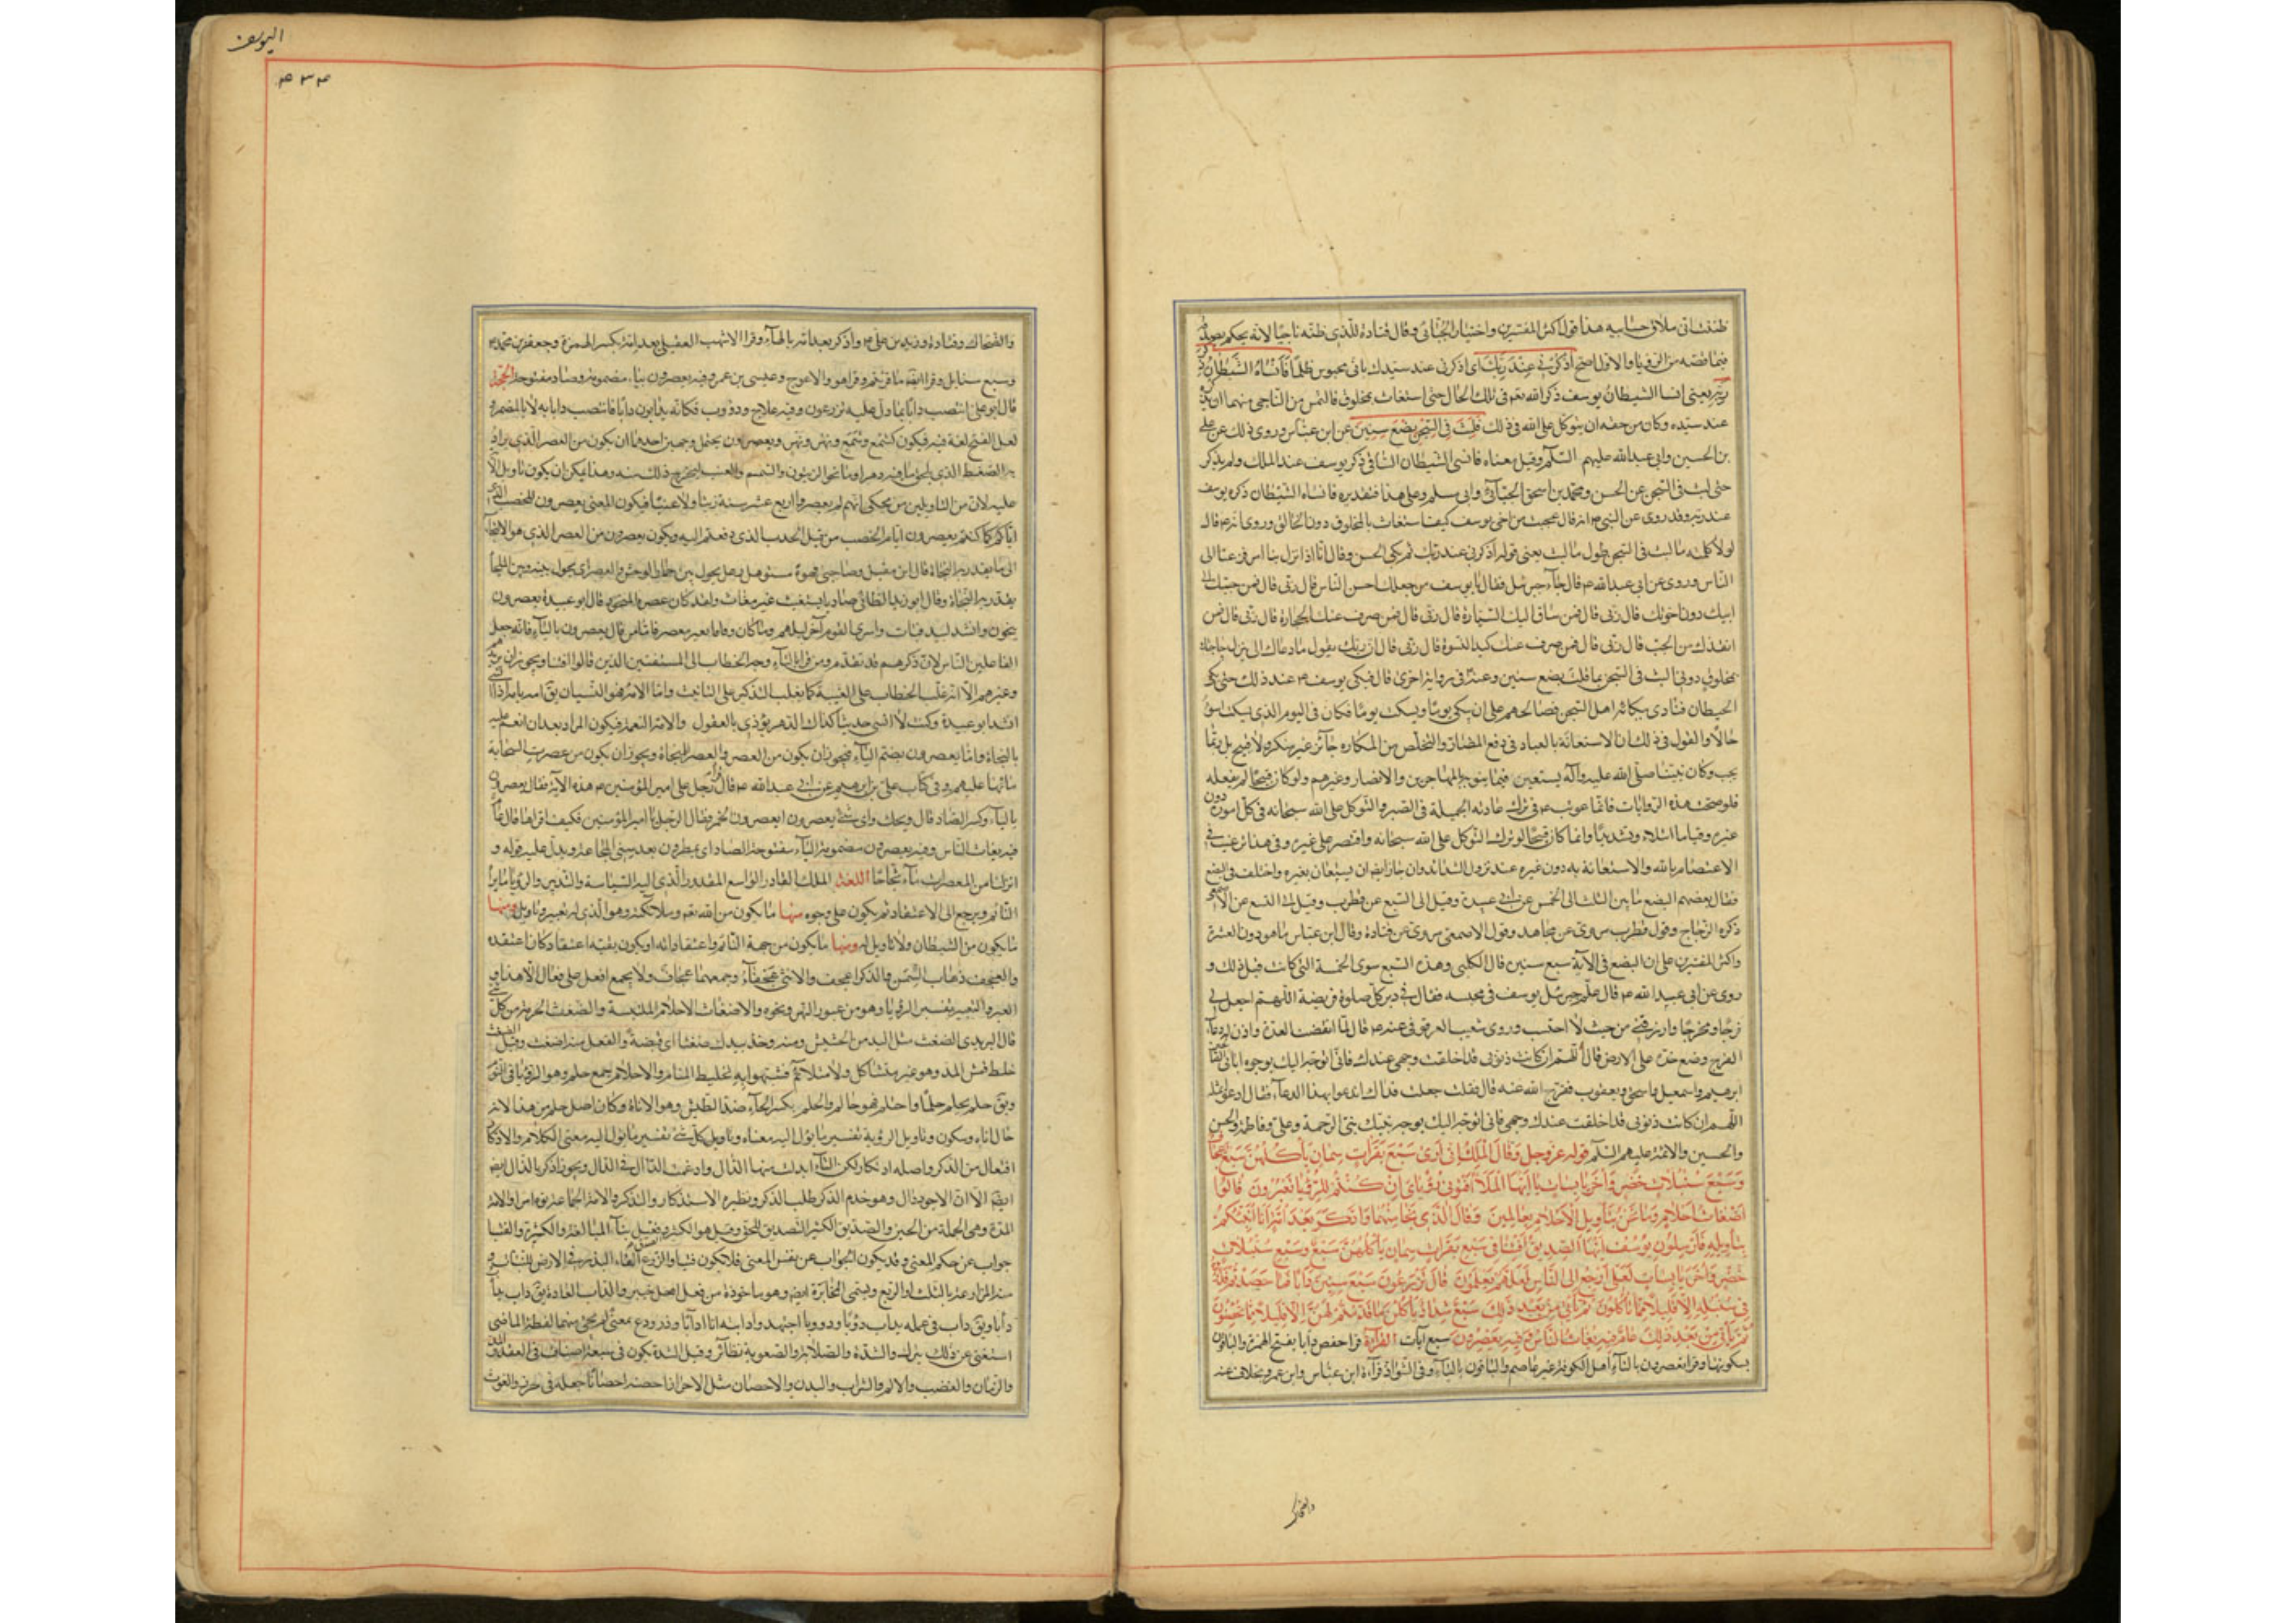 ظننت انى ملاق حسابيه هذا قول اكثر المفسرين واختيار الجبائى وقال قتادة للذى ظنه ناجيا لانه يحكم بصدقه
فيما قصه من الرؤيا والاول اصح اذكرنى عند ربك اى اذكرنى عند سيدك بانى محبوس ظلما فانساه الشيطان ذكر
ربه يعنى انسا الشيطان يوسف ذكر الله تعه فى تلك الحال حتى استغاث بمخلوق فالتمس من الناجى منهما ان يذكره
عند سيده وكان من حقه ان يتوكل على الله فى ذلك فلبث فى السجن بضع سنين عن ابن عباس وروى ذلك عن على
بن الحسين وابى عبدالله عليهم السلم وقيل معناه فانسى الشيطان الساقى ذكر يوسف عند الملك ولم يذكر
حتى لبث فى السجن عن الحسن ومحمد بن اسحق الجبائى وابى مسلم وعلى هذا فتقديره فانساه الشيطان ذكر يوسف
عند ربه وقد روى عن النبى انه قال عجبت من اخى يوسف كيف استغاث بالمخلوق دون الخالق وروى انه قال
لولا كلمته ما لبث فى السجن طول ما لبث يعنى قوله اذكرنى عند ربك ثم بكى الحسن وقال انا اذا نزل بنا امر فزعنا الى
الناس وروى عن ابى عبدالله قال جاء جبرئيل فقال يا يوسف من جعلك احسن الناس قال ربى قال فمن حببك الى
ابيك دون اخوتك قال ربى قال فمن ساق اليك السيارة قال ربى قال فمن صرف عنك الحجارة قال ربى قال فمن
انقذك من الجب قال ربى قال فمن صرف عنك كيد النسوة قال ربى قال فان ربك يقول ما دعاك الى ان تنزل حاجتك
بمخلوق دونى البث فى السجن بما قلت بضع سنين وعنه فى رواية اخرى قال فبكى يوسف عند ذلك حتى بكى
الحيطان فتأذى ببكائه اهل السجن فصالحهم على ان يبكى يوما ويسكت يوما فكان فى اليوم الذى يسكت اسوء
حالا والقول فى ذلك ان الاستعانة بالعباد فى دفع المضار والتخلص من المكاره جائز غير منكر ولا قبيح بل ربما
يجب وكان نبينا صلى الله عليه واله يستعين فيما ينوبه بالمهاجرين والانصار وغيرهم ولو كان قبيحا لم يفعله
فلو صحت هذه الروايات فانما عوتب فى ترك عادته الجميلة فى الصبر والتوكل على الله سبحانه فى كل اموره دون
غيره وقتا ما ابتلاء وتشديدا وانما كان قبيحا لو ترك التوكل على الله سبحانه واقتصر على غيره وفى هذا ترغيب فى
الاعتصام بالله والاستعانة به دون غيره عند نزول الشدائد وان جاز ايضا ان يستعان بغيره واختلف فى البضع
فقال بعضهم البضع ما بين الثلث الى الخمس عن ابى عبيدة وقيل الى السبع عن قطرب وقيل الى التسع عن الاصمعى
ذكره الزجاج وقول قطرب مروى عن مجاهد وقول الاصمعى مروى عن قتادة وقال ابن عباس ما هو دون العشرة
واكثر المفسرين على ان البضع فى الآية سبع سنين قال الكلبى وهذه السبع سوى الخمسة التى كانت قبل ذلك و
روى عن ابى عبدالله قال علم جبرئيل يوسف فى محبسه فقال فى دبر كل صلوة فريضة اللهم اجعل لى
فرجا ومخرجا وارزقنى من حيث لا احتسب وروى شعيب العقرقوفى عنه قال لما انقضت المدة واذن له فى دعاء
الفرج وضع خده على الارض ثم قال اللهم ان كانت ذنوبى قد اخلقت وجهى عندك فانى اتوجه اليك بوجوه ابائى
ابرهيم واسمعيل واسحق ويعقوب ففرج الله عنه قال فقلت جعلت فداك اندعوا بهذا الدعاء فقال ادعوا بمثله
اللهم ان كانت ذنوبى قد اخلقت عندك وجهى فانى اتوجه اليك بوجه نبيك نبى الرحمة وعلى وفاطمة والحسن
والحسين والائمة عليهم السلم قوله عز وجل وقال الملك انى ارى سبع بقرات سمان يأكلهن سبع عجاف
وسبع سنبلات خضر واخر يابسات يا ايها الملأ افتونى فى رؤياى ان كنتم للرؤيا تعبرون قالوا
اضغاث احلام وما نحن بتأويل الاحلام بعالمين وقال الذى نجا منهما وادكر بعد امة انا انبئكم
بتأويله فارسلون يوسف ايها الصديق افتنا فى سبع بقرات سمان يأكلهن سبع عجاف وسبع سنبلات
خضر واخر يابسات لعلى ارجع الى الناس لعلهم يعلمون قال تزرعون سبع سنين دابا فما حصدتم فذروه
فى سنبله الا قليلا مما تأكلون ثم يأتى من بعد ذلك سبع شداد يأكلن ما قدمتم لهن الا قليلا مما تحصنون
ثم يأتى من بعد ذلك عام فيه يغاث الناس وفيه يعصرون سبع ايات القراءة قرا حفص دابا بفتح الهمزة والباقون
بسكونها وقرا تعصرون بالتاء اهل الكوفة غير عاصم والباقون بالياء وفى الشواذ قراءة ابن عباس وابن عمر بخلاف عنه
والضحاك
اليوسف
۴۳۴
والضحاك وقتادة وزيد بن على واذكر بعد امه بالهاء وقرا الاشهب العقيلى بعد امة بكسر الهمزة وجعفر بن محمد
وسبع سنابل وقرا ايضا ما قربتم وقرا هو والاعرج وعيسى بن عمر وفيه يعصرون بياء مضمومة وصاد مفتوحة الحجة
قال ابو على انتصب دابا بما دل عليه تزرعون وفيه علاج ودؤوب فكانه قال تدابون دابا فانتصب دابا به لا بالمضمر و
لعل الفتح لغة فيه فيكون كشمع وشمع ونهر ونهر ويعصرون يحتمل وجهين احدهما ان يكون من العصر الذى يراد
به الضغط الذى يلحق ما فيه دهن او ماء نحو الزيتون والسمسم والعنب ليخرج ذلك منه وهذا يمكن ان يكون تاويل الآية
عليه لان من المتاولين من يحكى انهم لم يعصروا اربع عشر سنة زيتا ولا عنبا فيكون المعنى يعصرون للخصب الذى
اتاكم كما كنتم تعصرون ايام الخصب من قبل الجدب الذى دفعتم اليه ويكون يعصرون من العصر الذى هو الالتجاء
الى ما يقدر به النجاة قال ابن مقبل وصاحبى وهوه مستوهل زعل يحول بين حمار الوحش والعصر اى يحول بينه وبين الملجأ
يقدر به النجاة وقال ابو زبيد الطائى صاديا يستغيث غير مغاث ولقد كان عصرة المنجود قال ابو عبيدة يعصرون
ينجون وانشد للبيد فبات واسرى القوم آخر ليلهم وما كان وقافا بغير معصر فاما من قال يعصرون بالياء فانه جعل
الفاعلين الناس لان ذكرهم قد تقدم ومن قرا بالتاء وجه الخطاب الى المستفتين الذين قالوا افتنا ويجوز ان يريدهم
وغيرهم الا انه غلب الخطاب على الغيبة كما يغلب التذكير على التانيث واما الامه فهو النسيان يق امه يامه امها
انشد ابو عبيدة وكنت لا انسى حديثا كذاك الدهر يؤذى بالعقول والامة النعمة فيكون المراد بعد ان انعم عليه
بالنجاة واما يعصرون بضم الياء فيجوز ان يكون من العصر والعصر النجاة ويجوز ان يكون من عصرت السحابة
ماءها عليهم وفى كتاب على بن ابرهيم عن ابى عبدالله قال قرا رجل على امير المؤمنين هذه الآية فقال يعصرون
بالياء وكسر الصاد قال ويحك واى شئ يعصرون ايعصرون الخمر فقال الرجل يا امير المؤمنين فكيف اقراها قال عام
فيه يغاث الناس وفيه يعصرون مضمومة الياء مفتوحة الصاد اى يمطرون بعد سنى المجاعة ويدل عليه قوله و
انزلنا من المعصرات ماء ثجاجا اللغة الملك القادر الواسع المقدور الذى اليه السياسة والتدبير والرؤيا ما يراه
النائم ويرجع الى الاعتقاد ثم يكون على وجوه منها ما يكون من الله تعه وملائكته وهو الذى له تعبير وتاويل ومنها
ما يكون من الشيطان ولا تاويل له ومنها ما يكون من جهة النائم واعتقاداته او يكون بقية اعتقاد كان اعتقده
والعجف ذهاب السمن والذكر اعجف والانثى عجفاء وجمعهما عجاف ولا يجمع افعل على فعال الا هذا و
العبر والتعبير تفسير الرؤيا وهو من عبور النهر ونحوه والاضغاث الاحلام الملتبسة والضغث الحزمة من كل شئ
قال اليزيدى الضغث مثل اليد من الحشيش ومنه وخذ بيدك ضغثا اى قبضة والفعل منه اضغث وقيل الضغث
خلط قبش المد وهو غير متشاكل ولا متلائم فشبهوا به تخليط المنام والاحلام جمع حلم وهو الرؤيا فى النوم
ويق حلم يحلم حلما واحتلم فهو حالم والحلم بكسر الحاء ضد الطيش وهو الاناة وكان اصل حلم من هذا لانه
حال اناة وسكون وتاويل الرؤية تفسير ما يؤل اليه معناه وتاويل كل شئ تفسير ما يؤل اليه معنى الكلام والادكار
افتعال من الذكر واصله اذتكار لكن التاء ابدلت منها الدال وادغمت الذال فى الدال ويجوز اذكر بالذال ايضا
ايضا الا ان الاجود الدال وهو خدم الذكر طلب الذكر ونظيره الاستذكار والتذكر والامة الجماعة يؤم امرا والامة
المدة وهى الجملة من الحين والصديق الكثير التصديق للحق وقيل هو الكثير الصدق وفعيل بناء المبالغة والكثرة والفتيا
جواب عن حكم المعنى وقد يكون الجواب عن نفس المعنى فلا تكون فتيا والزرع القاء البذر فى الارض للنبات و
منه المزارعة بالثلث او الربع ويسمى المخابرة ايضا وهو ماخوذة من فعل اهل خيبر والداب العادة يق داب يداب
دابا ويق داب فى عمله يداب دؤبا ودؤوبا اجتهد وادابته انا ادابا وذر ودع بمعنى لم يجئ منهما لفظة الماضى
استغنى عن ذلك بترك والشدة والصلابة والصعوبة نظائر وقيل الشدة يكون فى سبعة اصناف فى العقد والمد
والزمان والغضب والالم والشراب والبدن والاحصان مثل الاحراز احصنه احصانا جعله فى حرز والغوث